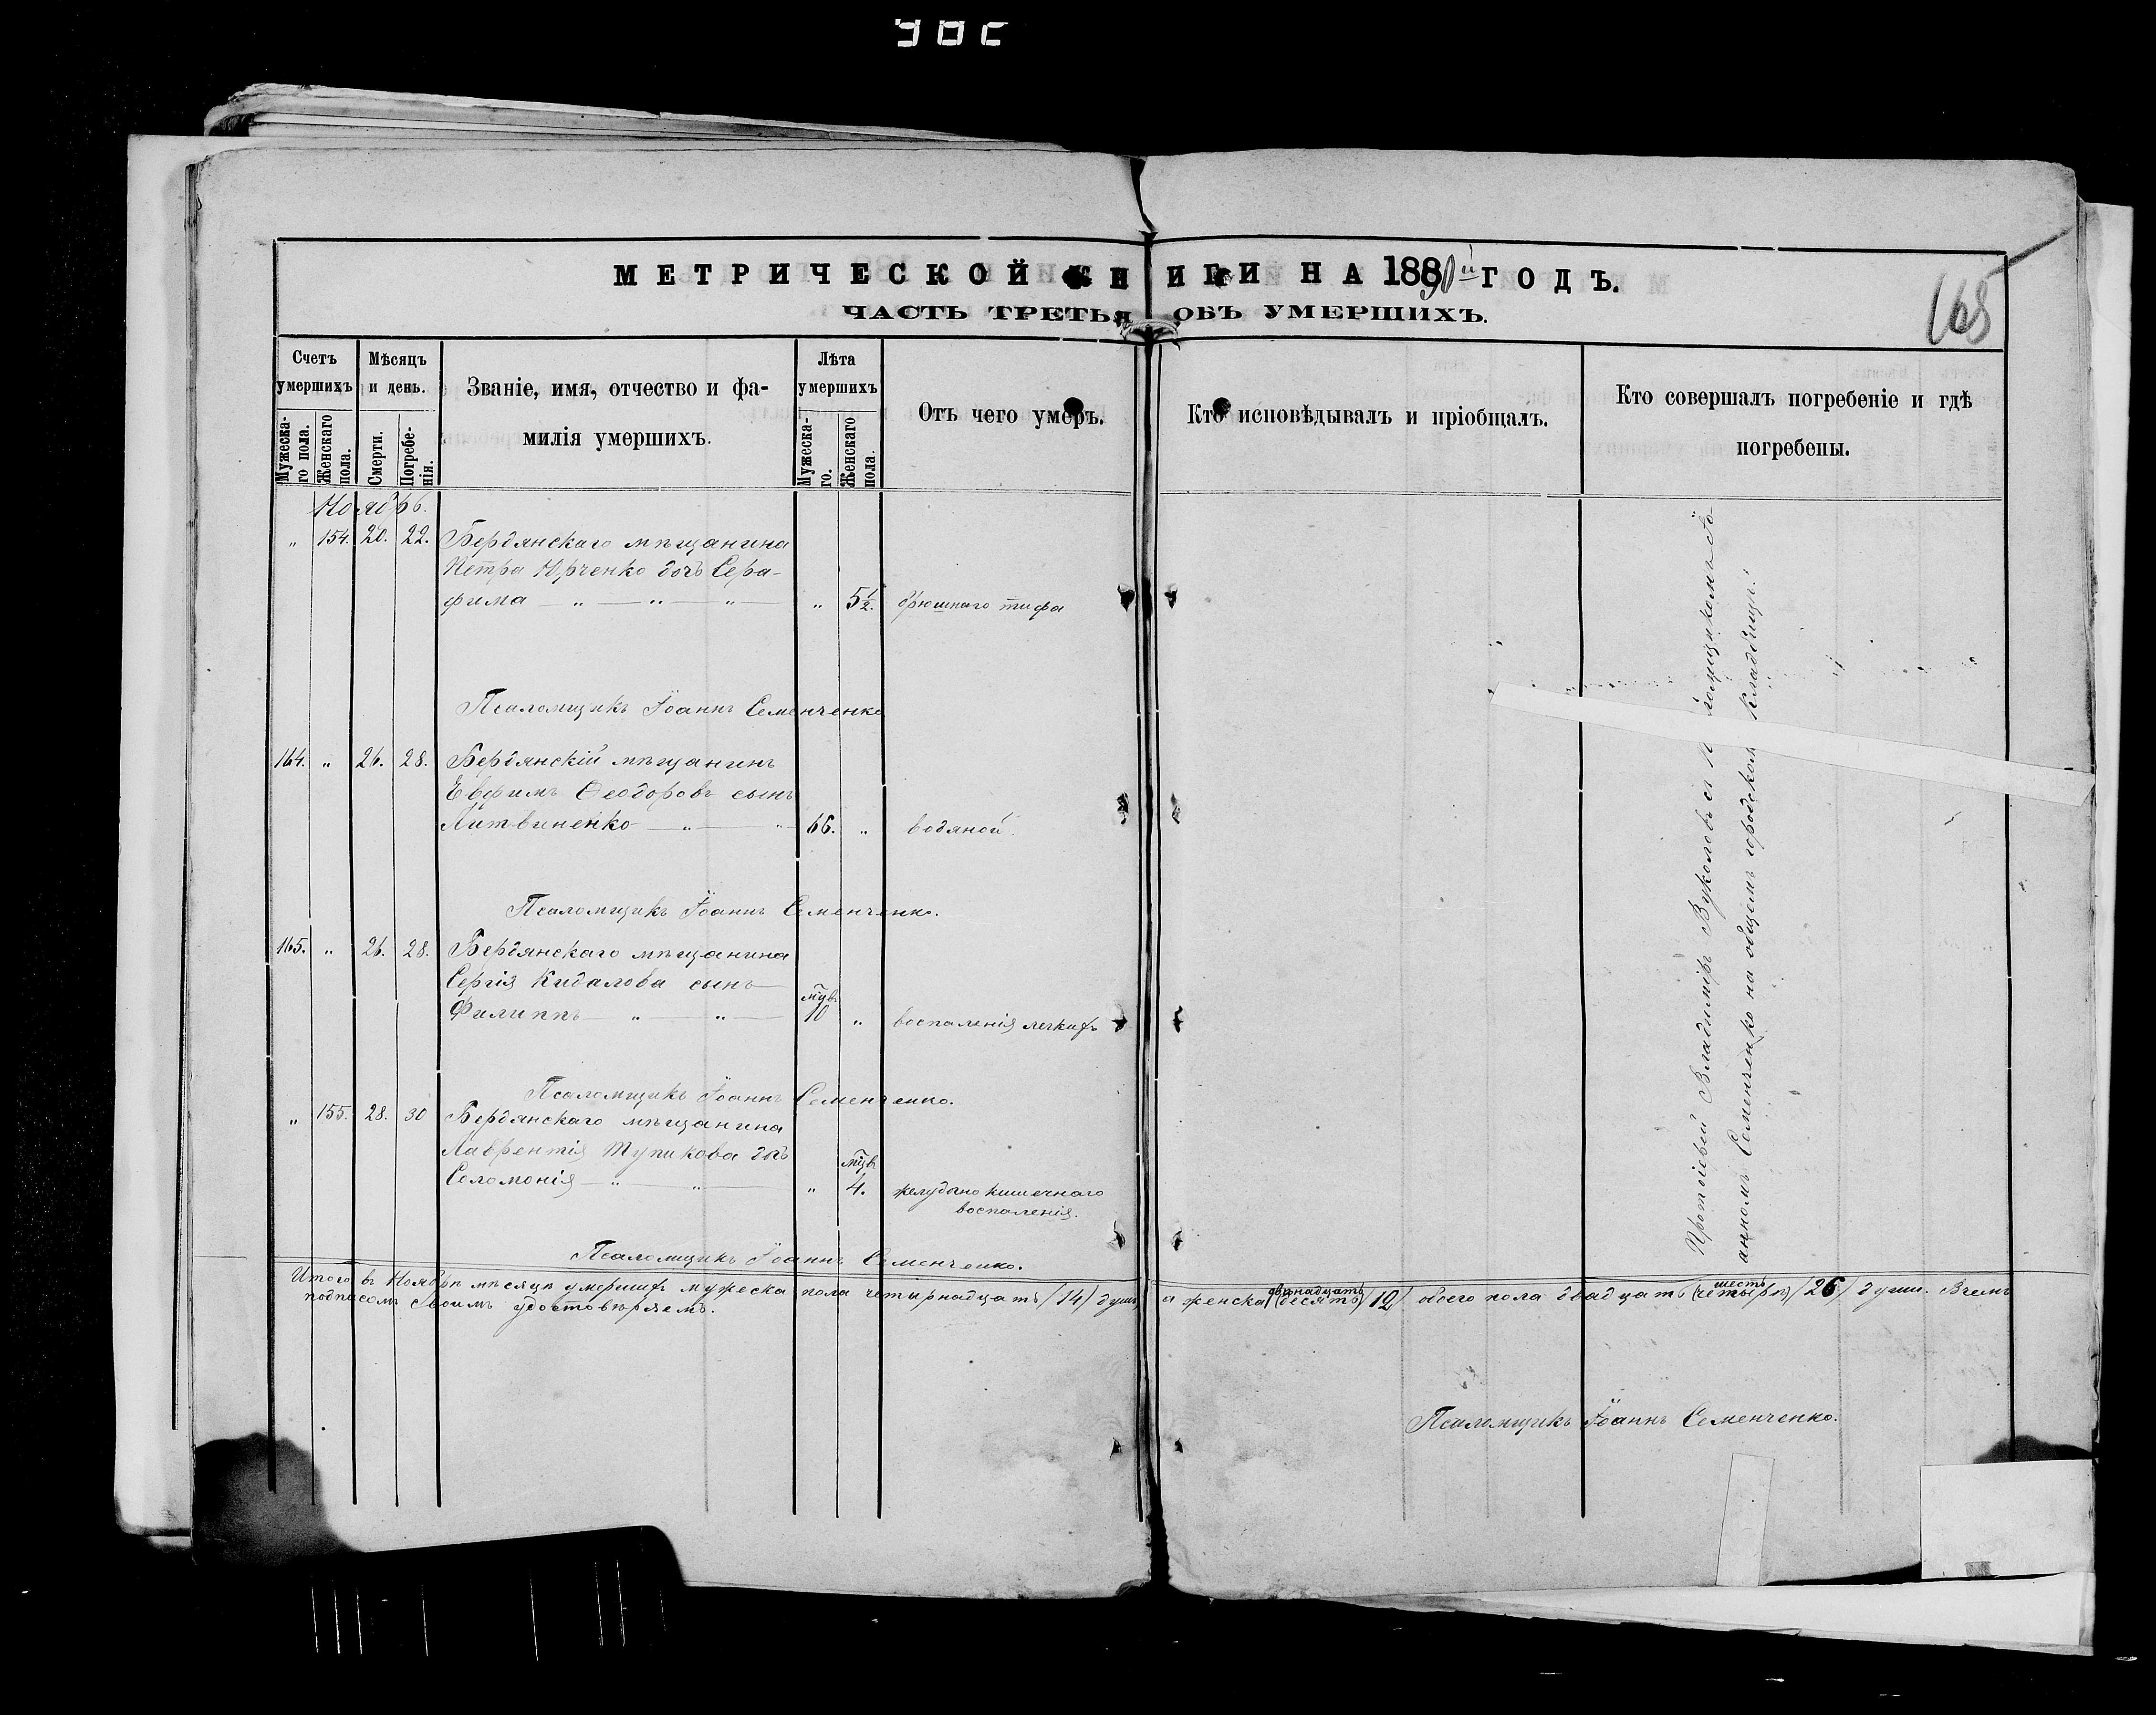 МЕТРИЧЕСКОЙ КНИГИ НА 1890й ГОДЪ.
ЧАСТЬ ТРЕТЬЯ ОБЪ УМЕРШИХЪ.
168
Счетъ умершихъ
Мужеска-го пола.
Женскаго пола.
Мѣсяцъ и день.
Смерти.
Погребе-нія.
Званіе, имя, отчество и фа-
милія умершихъ.
Лѣта умершихъ
Мужеска-го.
Женскаго пола.
Отъ чего умеръ.
Кто исповѣдывалъ и пріобщалъ.
Кто совершалъ погребеніе и гдѣ
погребены.
Ноябрь.
„ 154. 20. 22. Бердянскаго мѣщанина
Петра Юрченко дочь Сера-
фима — „ — „ — „ — „ 5½. брюшнаго тифа
Псаломщикъ Іоаннъ Семенченко
164. „ 26. 28. Бердянскій мѣщанинъ
Евфимъ Ѳеодоровъ сынъ
Литвиненко — „ — „ — 66. „ водяной.
Псаломщикъ Іоаннъ Семенченко.
165. „ 26. 28. Бердянскаго мѣщанина
Сергія Кидалова сынъ —
Филиппъ — „ — „ — мцв. 10 „ воспаленія легкихъ
Псаломщикъ Іоаннъ Семенченко.
„ 155. 28. 30 Бердянскаго мѣщанина
Лаврентія Тупикова дчь
Соломонія — „ — „ — „ мцв. 4. желудочно кишечнаго
воспаленія.
Псаломщикъ Іоаннъ Семенченко.
Протоіерей Владиміръ Вуколовъ съ Псаломщикомъ Іо-
анномъ Семенченко на общемъ городскомъ кладбищѣ.
Итого въ Ноябрѣ мѣсяцѣ умершихъ мужеска пола четырнадцать /14/ душъ, а женска двѣнадцать (десять) /12/ обоего пола двадцать шесть (четыре) /26/ души. Въ чемъ
подписомъ своимъ удостовѣряемъ.
Псаломщикъ Іоаннъ Семенченко.